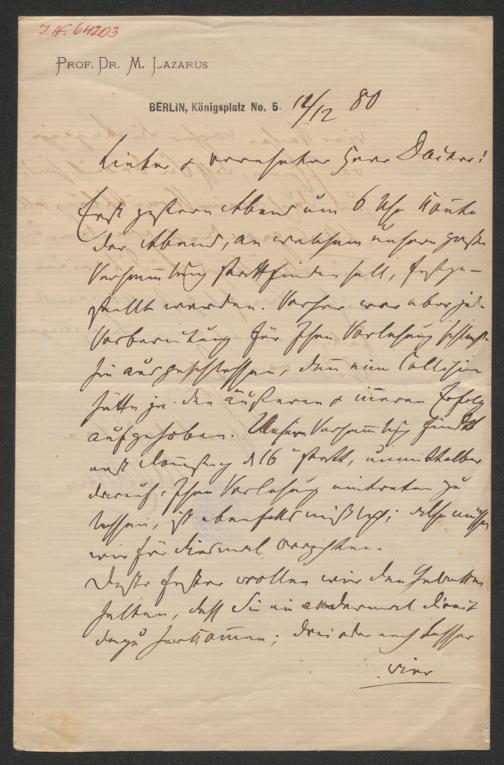 J.N. 64203
PROF. DR. M. LAZARUS
BERLIN, Königsplatz No. 5. 12/12 80
Lieber & verehrter Herr Doctor!
Erst gestern Abend um 6 Uhr konnte
der Abend, an welchem unsere große
Versammlung stattfinden soll, festge-
stellt werden. Vorher war aber jede
Vorbereitung für Ihre Vorlesung
hin ausgeschlossen, denn eine Collision
hätte ja den äußeren & inneren Erfolg
aufgehoben. Unsere Versammlung findet
erst Donnerstag d 16 statt, unmittelbar
darauf Ihre Vorlesung eintreten zu
lassen, ist ebenfalls mißlich; also müssen
wir für diesmal verzichten.
Desto fester wollen wir den Gedanken
halten, daß Sie ein andermal direct
dazu herkommen; drei oder noch besser
vier